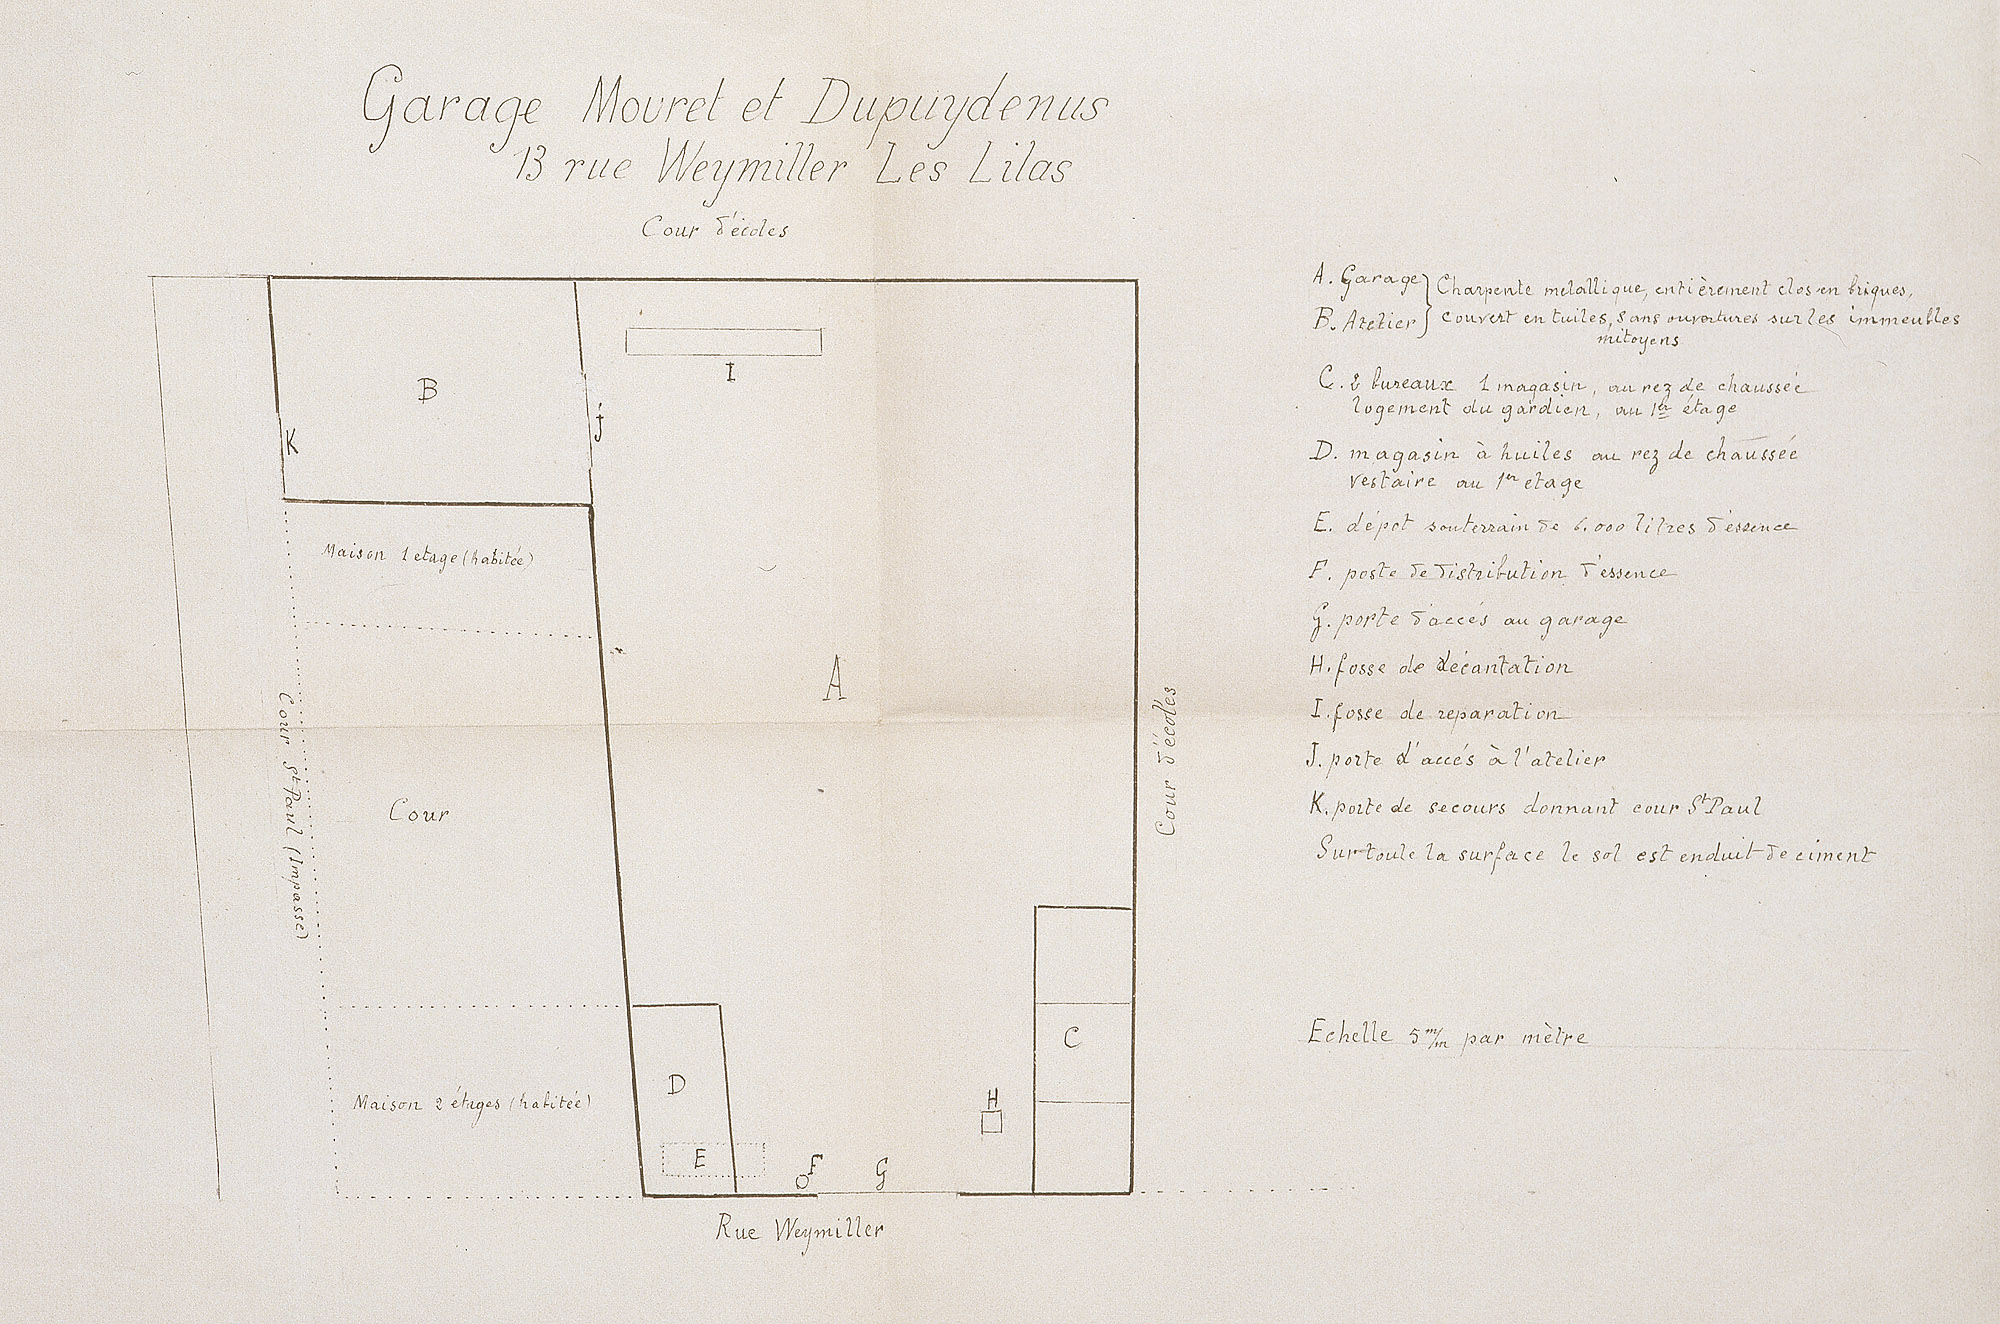 Garage Mouret et Dupuydenus
13 rue Weymiller Les Lilas
Cour d'écoles
A. Garage } Charpente metallique, entièrement clos en briques,
B. Atelier } couvert en tuiles, sans ouvertures sur les immeubles
mitoyens
C. 2 bureaux 1 magasin, au rez de chaussée
logement du gardien, au 1er étage
D. magasin à huiles au rez de chaussée
vestaire au 1er etage
E. dépot souterrain de 6.000 litres d'essence
F. poste de distribution d'essence
G. porte d'accés au garage
H. fosse de décantation
I. fosse de reparation
J. porte d'accés à l'atelier
K. porte de secours donnant cour St Paul
Sur toute la surface le sol est enduit de ciment
Echelle 5 m/m par mètre
B
I
J
K
Maison 1 etage (habitée)
A
Cour St Paul (Impasse)
Cour d'écoles
Cour
C
D
H
Maison 2 étages (habitée)
E
F
G
Rue Weymiller